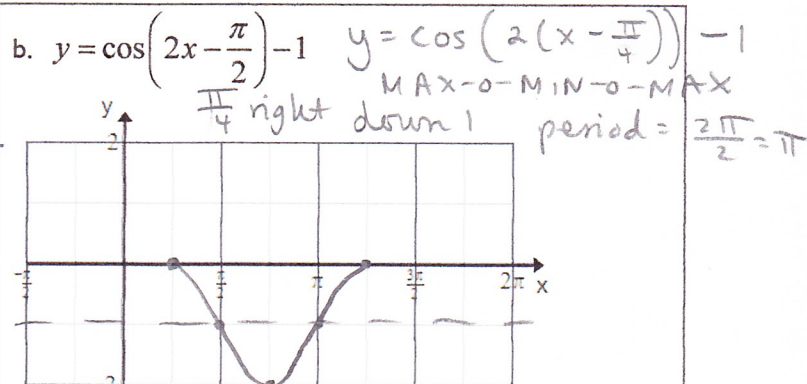 b. y = cos(2x − π/2) − 1 y = cos(2(x − π/4)) − 1
MAX-0-MIN-0-MAX
π/4 right down 1 period = 2π/2 = π
y
2
-π/2 π/2 π 3π/2 2π x